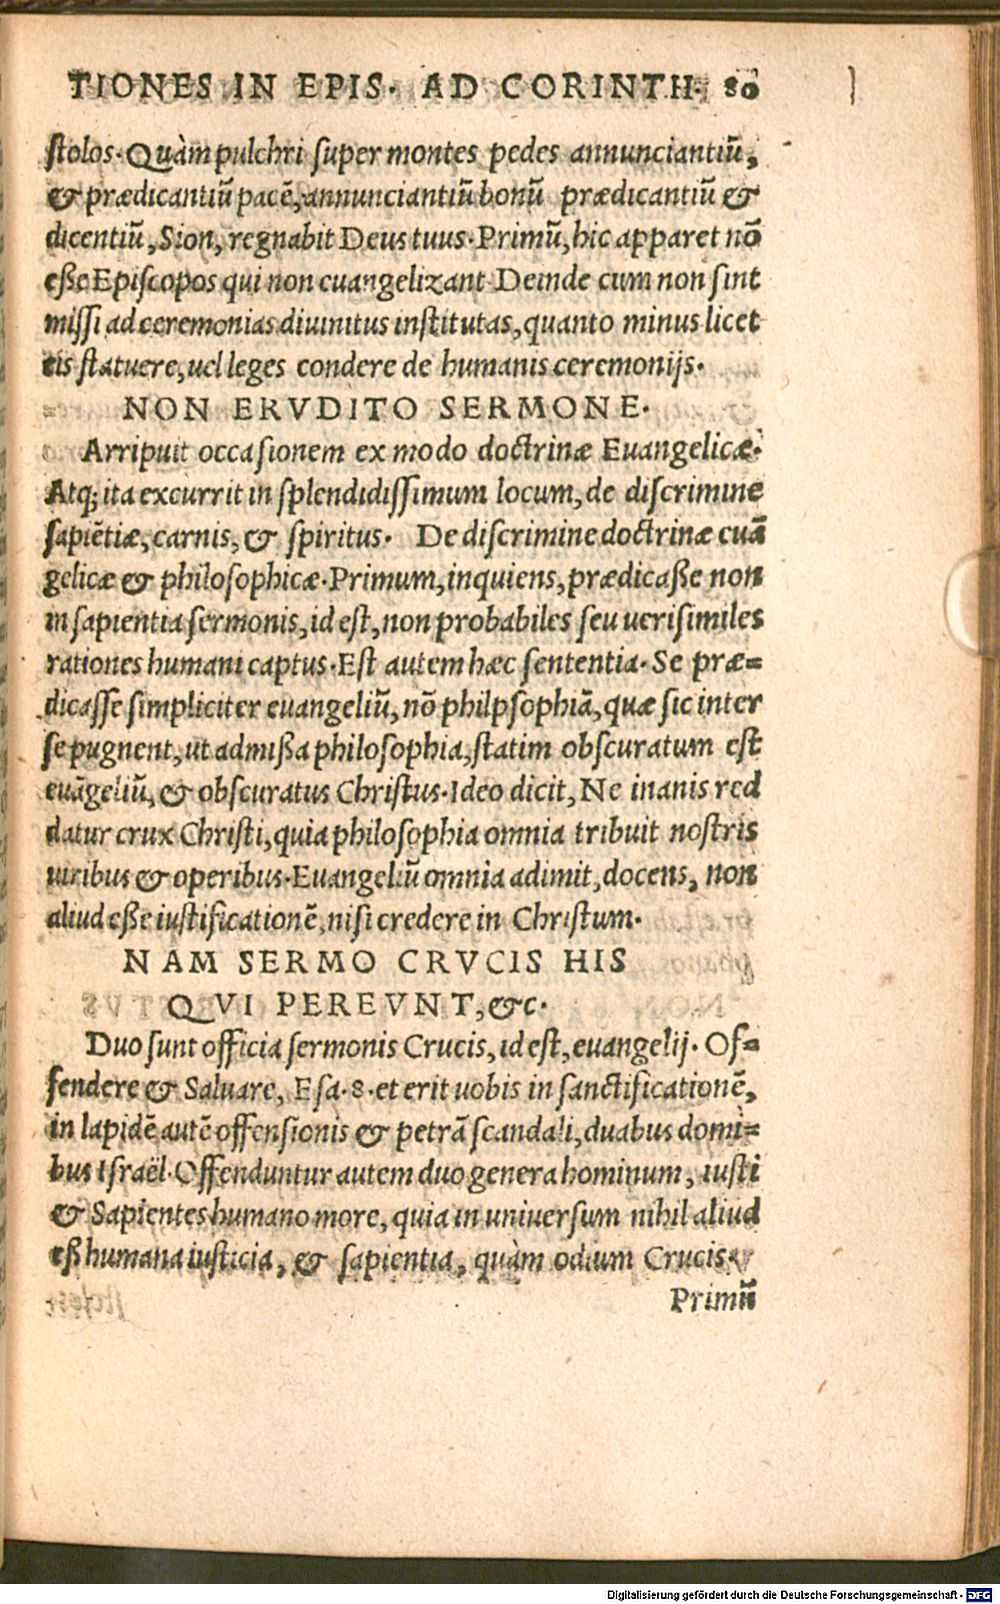 TIONES IN EPIS. AD CORINTH. 80
stolos. Quàm pulchri super montes pedes annunciantiũ,
& prædicantiũ pacẽ, annunciantiũ bonũ prædicantiũ &
dicentiũ, Sion, regnabit Deus tuus. Primũ, hic apparet nõ
eße Episcopos qui non euangelizant. Deinde cum non sint
missi ad ceremonias diuinitus institutas, quanto minus licet
eis statuere, uel leges condere de humanis ceremonijs.
NON ERVDITO SERMONE.
Arripuit occasionem ex modo doctrinæ Euangelicæ.
Atq; ita excurrit in splendidissimum locum, de discrimine
sapiẽtiæ, carnis, & spiritus. De discrimine doctrinæ euã
gelicæ & philosophicæ. Primum, inquiens, prædicaße non
in sapientia sermonis, id est, non probabiles seu uerisimiles
rationes humani captus. Est autem hæc sententia. Se præ=
dicasse simpliciter euangeliũ, nõ philpsophiã, quæ sic inter
se pugnent, ut admißa philosophia, statim obscuratum est
euãgeliũ, & obscuratus Christus. Ideo dicit, Ne inanis red
datur crux Christi, quia philosophia omnia tribuit nostris
uiribus & operibus. Euangeliũ omnia adimit, docens, non
aliud eße iustificationẽ, nisi credere in Christum.
NAM SERMO CRVCIS HIS
QVI PEREVNT, &c.
Duo sunt officia sermonis Crucis, id est, euangelij. Of=
fendere & Saluare, Esa. 8. et erit uobis in sanctificationẽ,
in lapidẽ autẽ offensionis & petrã scandali, duabus domi=
bus Israël. Offenduntur autem duo genera hominum, iusti
& Sapientes humano more, quia in uniuersum nihil aliud
eß humana iusticia, & sapientia, quàm odium Crucis.
Primũ
Digitalisierung gefördert durch die Deutsche Forschungsgemeinschaft - DFG